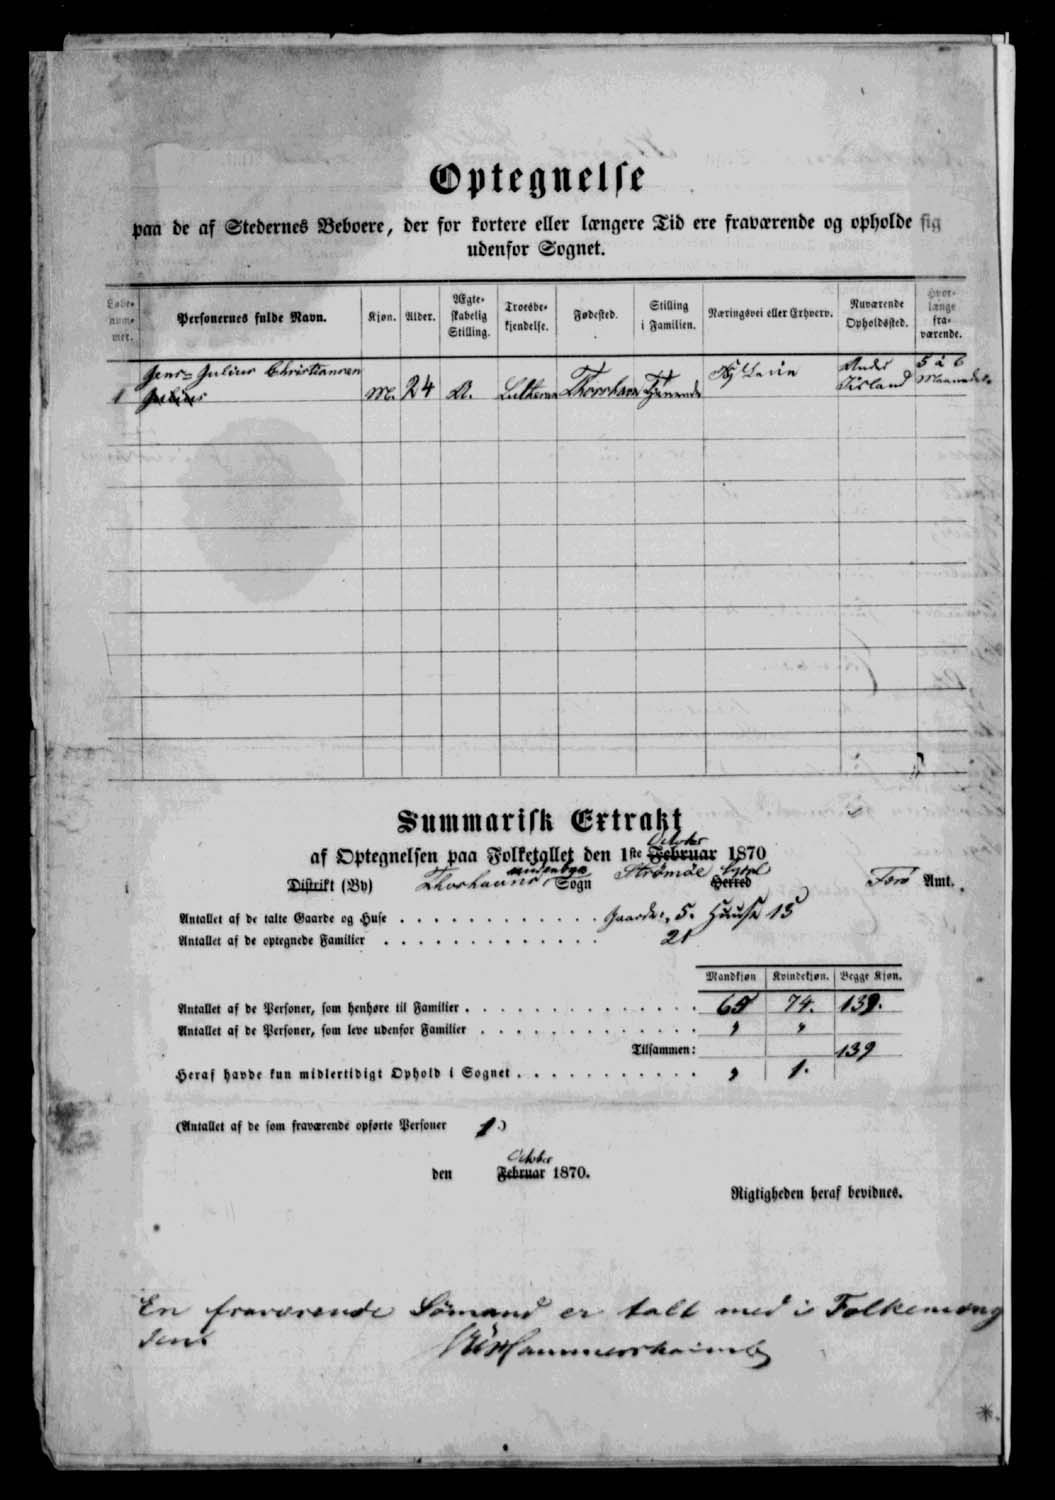 Optegnelse
paa de af Stedernes Beboere, der for kortere eller længere Tid ere fraværende og opholde sig
udenfor Sognet.
Løbe-
num-
mer.
Personernes fulde Navn.
Kjøn.
Alder.
Ægte-
skabelig
Stilling.
Troesbe-
kjendelse.
Fødested.
Stilling
i Familien.
Næringsvei eller Erhverv.
Nuværende
Opholdssted.
Hvor-
længe
fra-
værende.
Jens Julius Christiansen
1 Julius M. 24 U. Luthersk Thorshavn Tjenende Under Island 5 à 6 Maaneder
Summarisk Extrakt
October
af Optegnelsen paa Folketallet den 1ste Februar 1870
udenbys
Distrikt (By) Thorshavns Sogn Strømöe Syssel Herred Færö Amt.
Antallet af de talte Gaarde og Huse . . . Gaarde: 5. Huuse 15
Antallet af de optegnede Familier . . . 21
Mandkjøn Kvindekjøn. Begge Kjøn.
Antallet af de Personer, som henhøre til Familier . . . 65 74. 139.
Antallet af de Personer, som leve udenfor Familier . . . " "
Tilsammen: 139
Heraf havde kun midlertidigt Ophold i Sognet . . . " 1.
(Antallet af de som fraværende opførte Personer 1.)
October
den Februar 1870.
Rigtigheden heraf bevidnes.
En fraværende Sömand er talt med i Folkemæng
den.
Hammershaimb